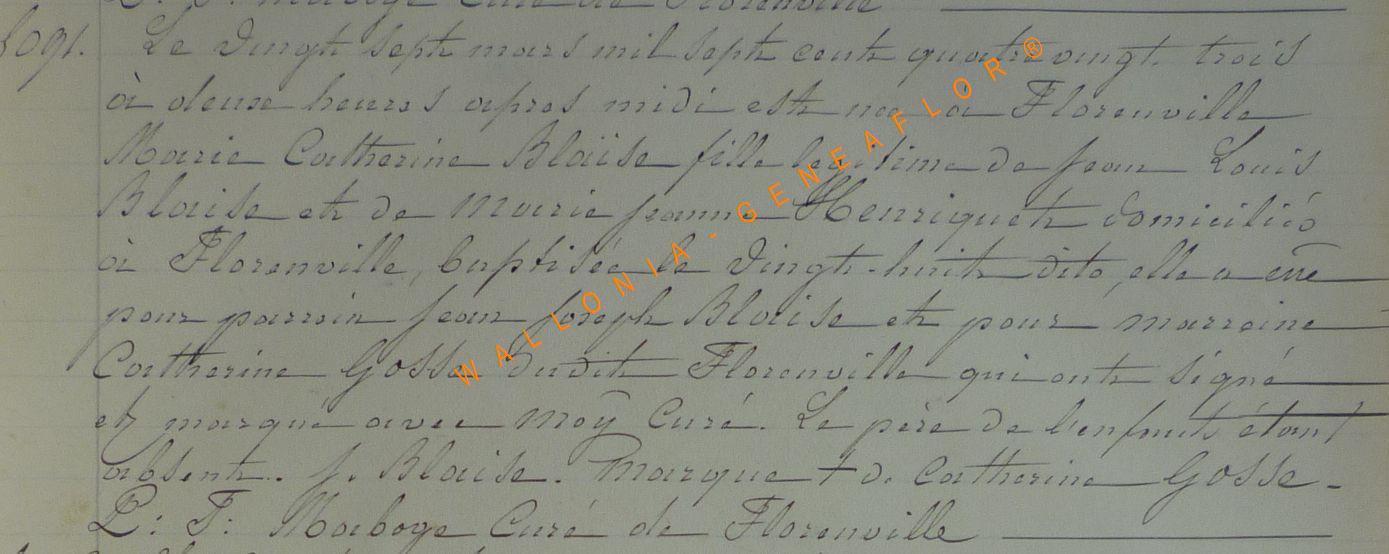 L: T: Maboge Curé de Florenville
Le vingt sept mars mil sept cent quatre vingt. trois
à deux heures apres midi est née à Florenville
Marie Catherine Blaise fille legitime de jean Louis
Blaise et de Marie jeanne Henriquet domicilié
à Florenville, baptisée le vingt-huit dito, elle a eue
pour parrein jean joseph Blaise et pour marreine
Catherine Gosse dudit Florenville qui ont signé
et marqué avec moÿ Curé. Le père de l'enfant étant
absent. j. Blaise. Marque + d. Catherine Gosse.
L: T: Maboge Curé de Florenville
WALLONIA - GENEAFLOR ®